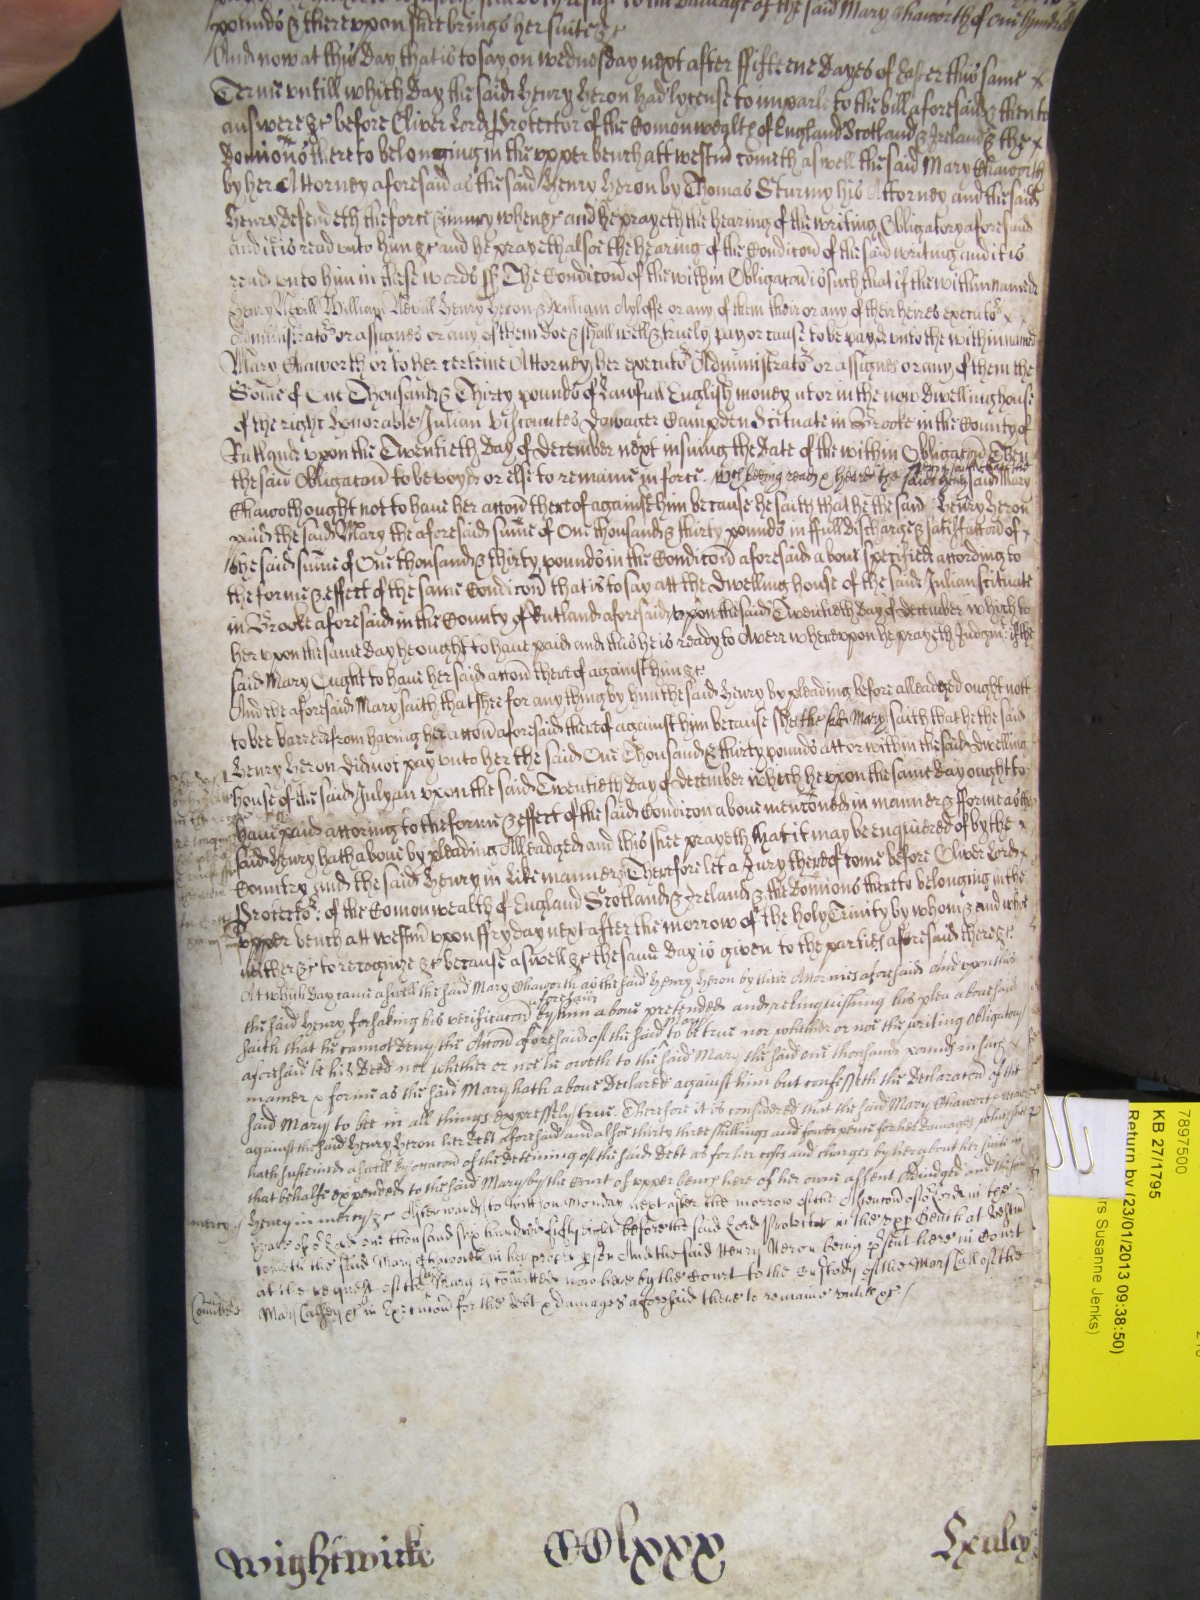 damage of the said Mary Chaworth of One hundred
pounds & thereupon shee brings her suite &c
And now at this Day that is to say on wednesday next after ffifteene Dayes of Easter this same
Terme untill which Day the said Henry Heron had lycense to imparle to the bill aforesaid & then to
answere &c before Oliver Lord Protector of the Comonwealth of England Scotland & Ireland & the
Domions thereto belonging in the upper bench att westm cometh aswell the said Mary Chaworth
by her Attorney aforesaid as the said Henry Heron by Thomas Sturmy his Attorney and the said
Henry defendeth the force & iniury when &c and he prayeth the hearing of the writing Obligatory aforesaid
and it is read unto him &c and he prayeth alsoe the hearing of the Condicon of the said writing and it is
read unto him in these words ss The Condicon of the within Obligacon is such that if the within named
Henry Nevill William Nevill Henry Heron & william Ayloffe or any of them their or any of their heires executors
Administrators or assignes or any of them doe & shall well & truely pay or cause to be payd unto the within named
Mary Chaworth or to her certeine Attorney her executors Administrators or assignes or any of them the
Some of One Thousand & Thirty pounds of Lawfull English money at or in the now dwelling house
of the right Honorable Julian Viscountes Dowager Campden Scituate in Brooke in the County of
Rutland upon the Twentieth Day of December next insuing the Date of the within Obligacon Then
the said Obligacon to be voyd or else to remaine in force. wch beeing read & heard the said Henry said Mary
Chaworth ought not to have her accon thereof against him because he saith that he the said Henry Heron
paid the said Mary the aforesaid sume of One thousand & thirty pounds in full discharge & satisfaccon of
the said sume of One thousand & thirty pounds in the Condicon aforesaid above specified according to
the forme & effect of the same Condicon that is to say att the Dwelling house of the said Julian scituate
in Brooke aforesaid in the County of Rutland aforesaid upon the said Twentieth Day of December which to
her upon the same Day he ought to have paid and this he is ready to Averr whereupon he prayeth Judgmt if the
said Mary Ought to have her said accon thereof against him &c
And the aforesaid Mary saith that shee for any thing by him the said Henry by pleading before alleadged ought nott
to bee barred from having her accon aforesaid thereof against him because shee the said Mary saith that he the said
Henry Heron did not pay unto her the said One Thousand & thirty pounds att or within the said Dwelling
house of the said Julyan upon the said Twentieth Day of December which he upon the same day ought to
have paid accoring to the forme & effect of the said Condicon above menconed in manner & forme as the
said Henry hath above by pleading Alleadged and this shee prayeth that it may be enquiered of by the
Country and the said Henry in Like manner & Therefore let a Jury thereof come before Oliver Lord
Protector of the Comonwealth of England Scotland & Ireland & the Domions thereto belonging in the
upper bench att westm upon ffryday next after the morrow of the Holy Trinity by whom & and whoe
neither &c to recognize &c because aswell &c the same Day is given to the parties aforesaid there &c
At which Day came aswell the said Mary Chaworth as the said Henry Heron by their Attornies aforesaid And upon this
the said Henry forsaking his verificacon aforesaid by him above pretended and relinquishing his plea abovesaid
saith that he cannot deny the Accon aforesaid of the said Mary to be true nor whether or noe the writing Obligatory
aforesaid be his Deed nor whether or noe he oweth to the said Mary the said one thousand pounds in such
manner & forme as the said Mary hath above Declared against him but confesseth the Declaracon of the
said Mary to bee in all things expressely true. Therefore it is considered that the said Mary Chaworth recover
against the said Henry Heron her debt aforesaid and alsoe thirty three shillings and fower pence for her damages which shee
hath susteined aswell by occacon of the deteining of the said debt as for her costs and charges by her about her suite in
that behalfe expended to the said Mary by the Court of upper bench here of her owne assent Adiudged and the said
Henry in mercy &c Afterwards, to witt on Monday next after the morrow of the Ascencon of or Lord in the
yeare of or Lord one thousand six hundred fifty eight before the said Lord Protector in the upp Bench at Westm
cometh the said Mary Chaworth in her proper pson And the said Henry Heron being psent here in Court
at the request of the said Mary is comitted now here by the Court to the Custody of the Marshall of the
Marshalsey &c in Execucon for the debt & damages aforesaid there to remaine untill &c
mercy
Comittr
Wightwicke
CClxxx
7897500
KB 27/1795
Return by (23/01/2013 09:38:50)
rs Susanne Jenks)